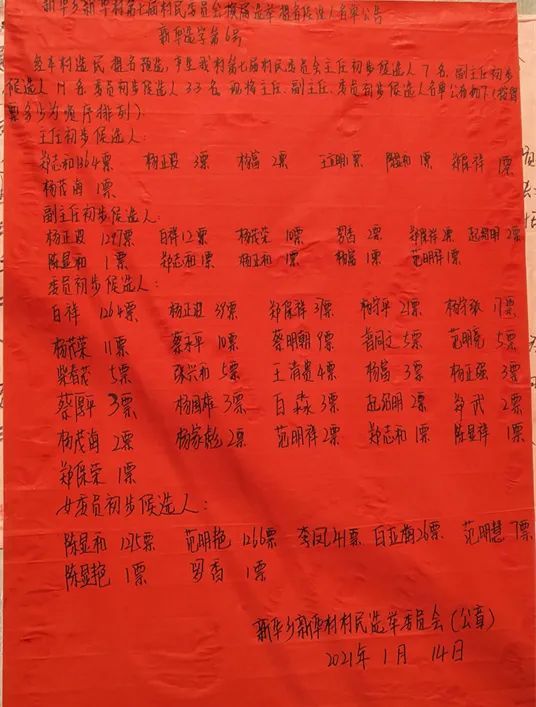 新华乡新华村第七届村民委员会换届选举提名候选人名单公告
新华选字第6号
经本村选民提名预选，产生我村第七届村民委员会主任初步候选人7名，副主任初步
候选人11名，委员初步候选人33名，现将主任、副主任、委员初步候选人名单公布如下（按得
票多少为顺序排列）：
主任初步候选人：
郑志和1364票 杨正设3票 杨富2票 1票 1票 郑保祥1票
杨茂海1票
副主任初步候选人：
杨正设1297票 白祥12票 杨茂荣10票 罗香2票 郑保祥2票 起绍明2票
陈显和1票 郑志和1票 杨正和1票 杨富1票 范明祥1票
委员初步候选人：
白祥1264票 杨正设39票 郑保祥39票 杨守平21票 杨守 17票
杨茂荣11票 蔡永平10票 蔡明朝9票 5票 范明亮5票
柴春茂5票 张兴和5票 王清贵4票 杨富3票 杨正强3票
蔡 平3票 杨国雄3票 白森3票 起绍明2票 武2票
杨茂海2票 杨家彪2票 范明祥2票 郑志和1票 陈显祥1票
郑保荣1票
女委员初步候选人：
陈显和125票 范明艳1266票 李凤41票 白亚梅26票 范明慧7票
陈显艳1票 罗香1票
新华乡新华村村民选举委员会（公章）
2021年1月14日